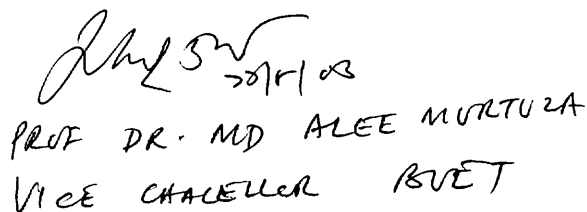 PROF DR. MD ALEE MURTUZA
VICE CHACELLOR BUET